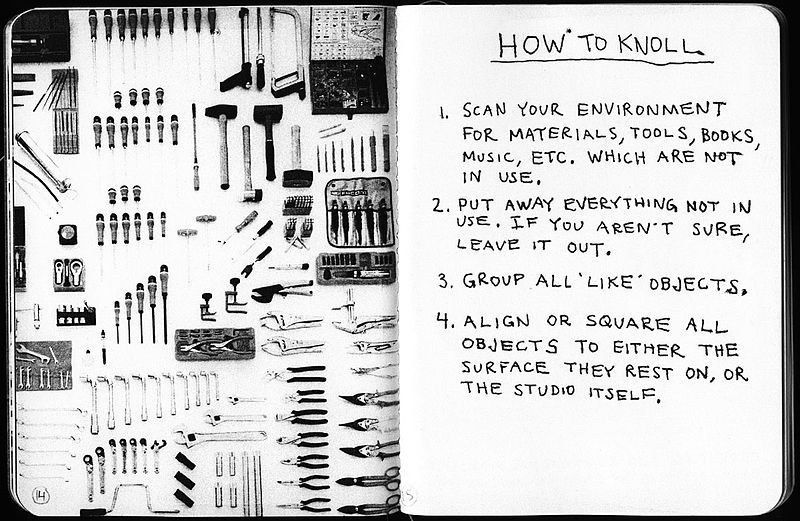 14
HOW TO KNOLL.
1. SCAN YOUR ENVIRONMENT
FOR MATERIALS, TOOLS, BOOKS,
MUSIC, ETC. WHICH ARE NOT
IN USE.
2. PUT AWAY EVERYTHING NOT IN
USE. IF YOU AREN'T SURE,
LEAVE IT OUT.
3. GROUP ALL 'LIKE' OBJECTS.
4. ALIGN OR SQUARE ALL
OBJECTS TO EITHER THE
SURFACE THEY REST ON, OR
THE STUDIO ITSELF.